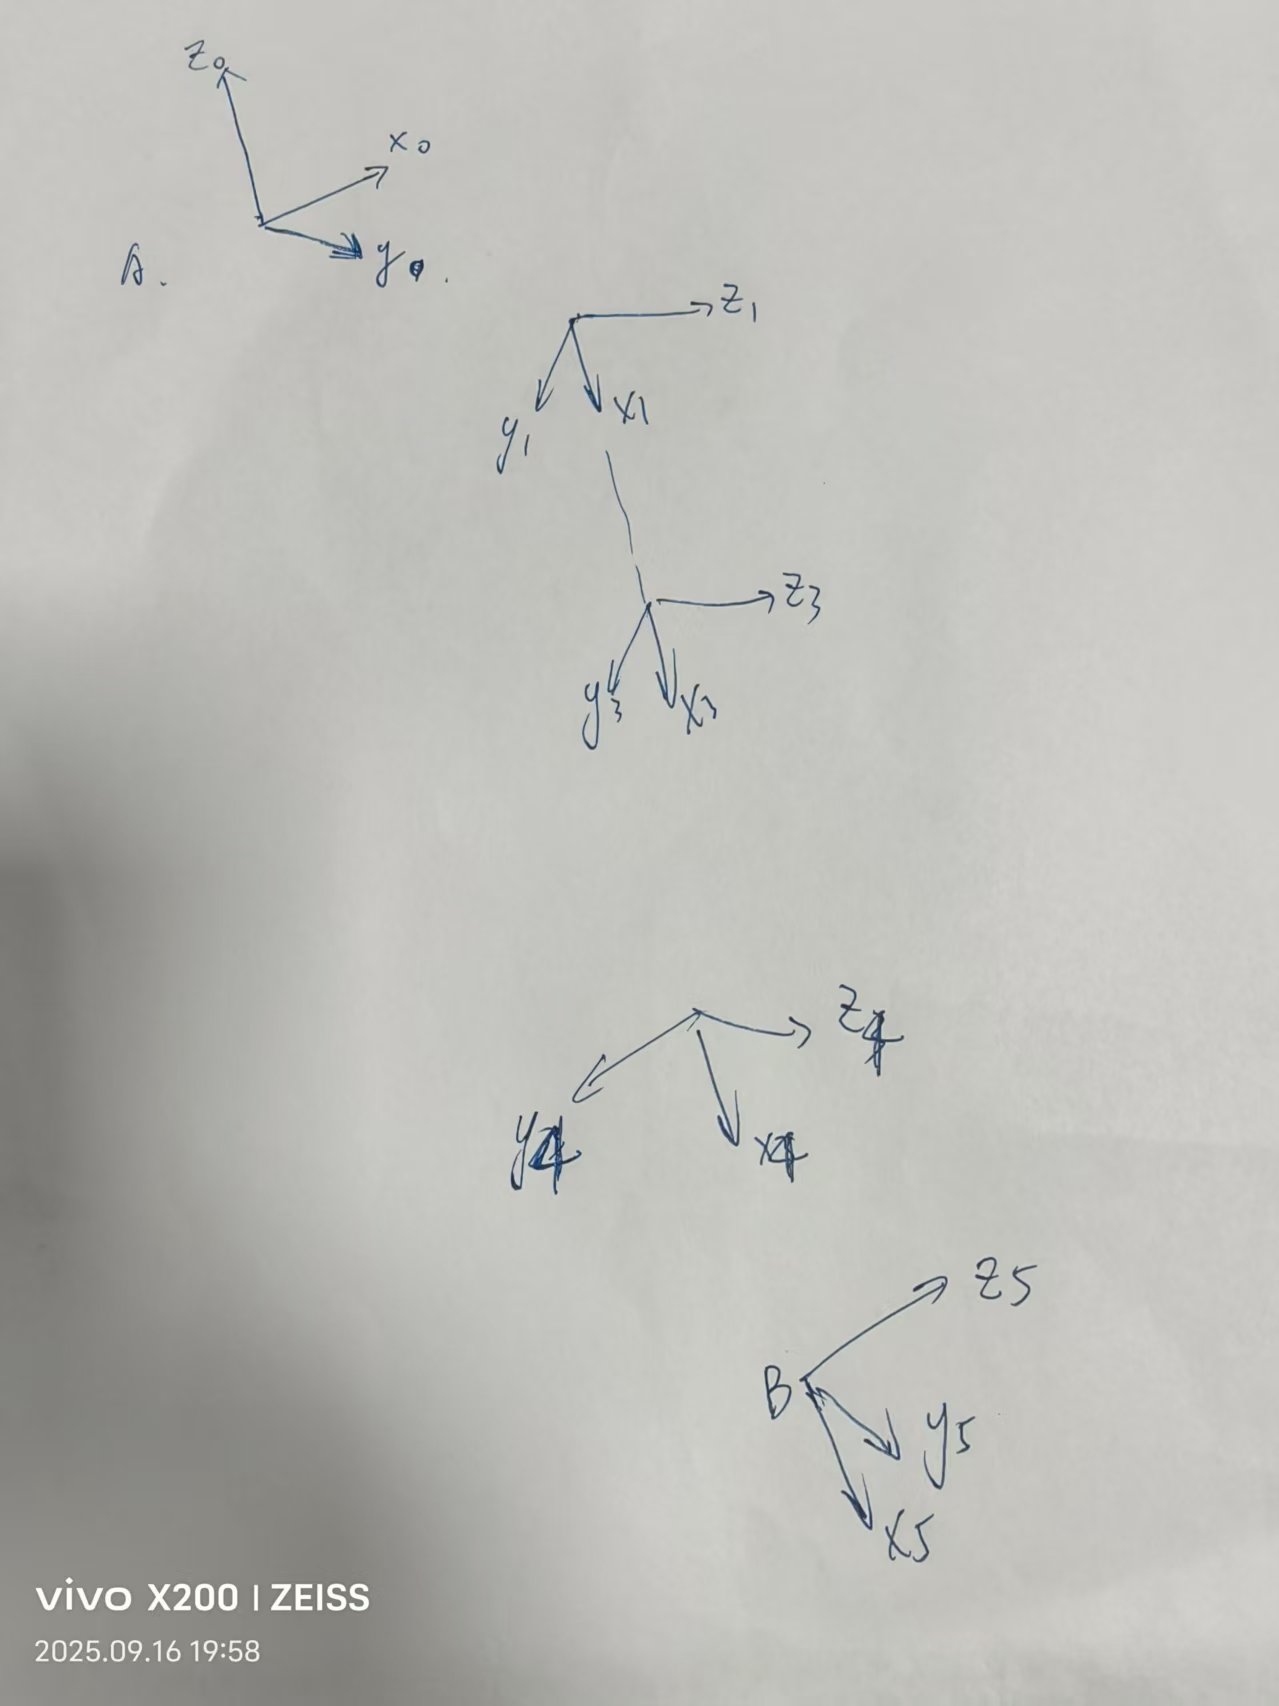 z0
x0
A.
y0.
z1
y1
x1
z3
y3
x3
z4
y4
x4
z5
B
y5
x5
vivo X200 | ZEISS
2025.09.16 19:58